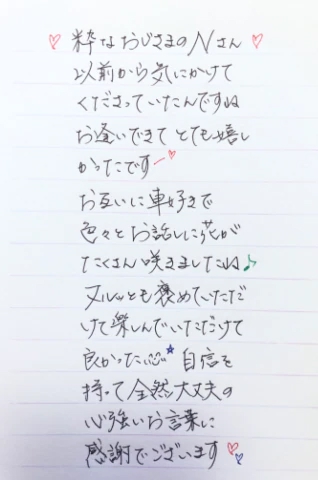 ♡ 粋なおじさまのNさん ♡
以前から気にかけて
くださっていたんですね
お逢いできてとても嬉し
かったですー♡
お互いに車好きで
色々とお話しに花が
たくさん咲きましたね♪
ヌルッとも褒めていただ
けて楽しんでいただけて
良かった☆ 自信を
持って全然大丈夫の
心強いお言葉に
感謝でございます♡♡